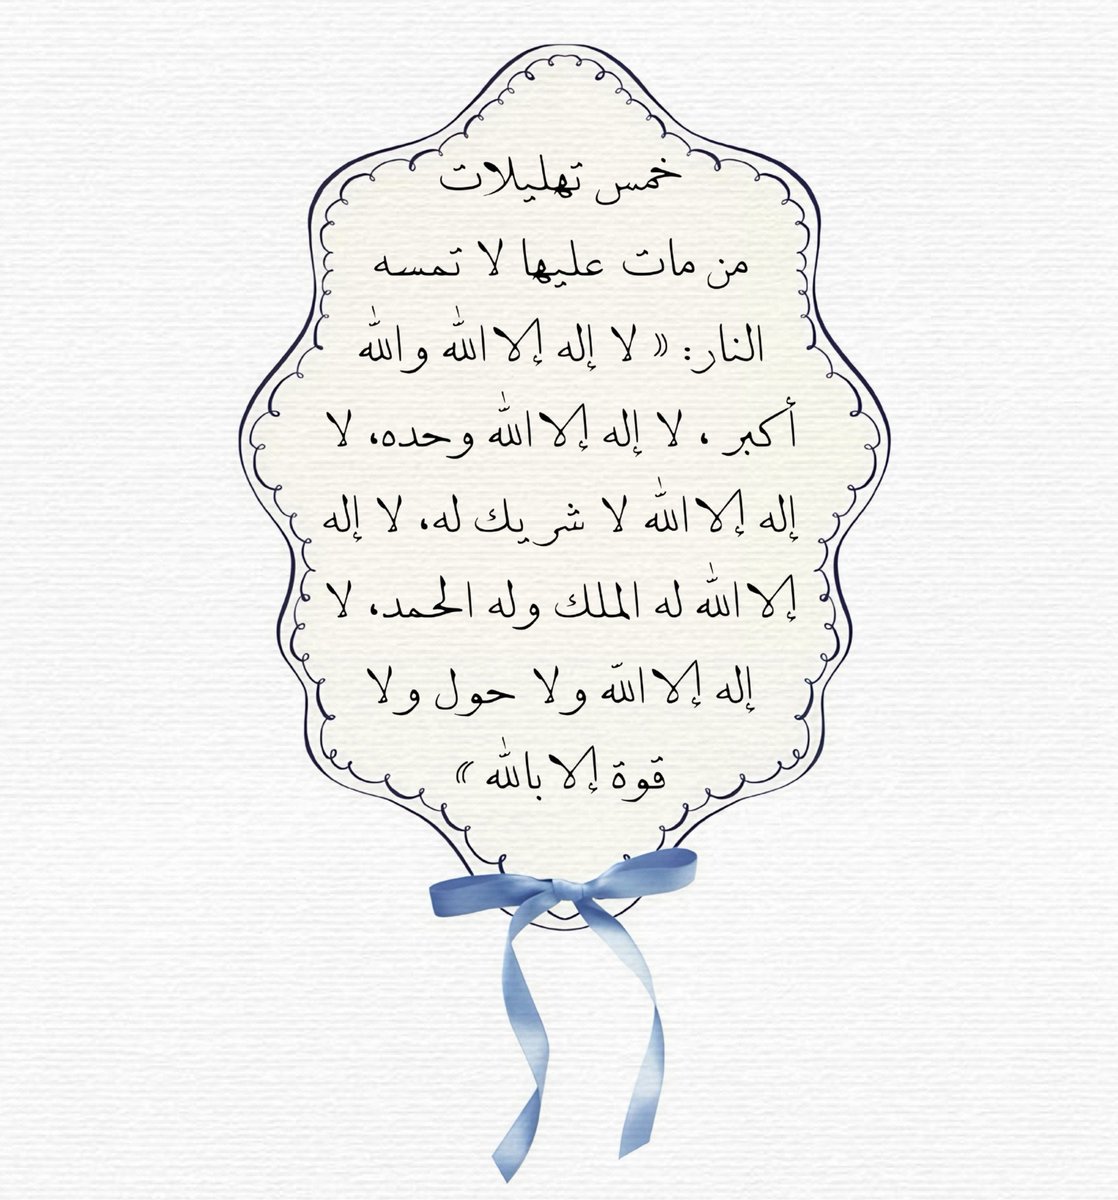 خمس تهليلات
من مات عليها لا تمسه
النار: « لا إله إلا الله والله
أكبر ، لا إله إلا الله وحده، لا
إله إلا الله لا شريك له، لا إله
إلا الله له الملك وله الحمد، لا
إله إلا الله ولا حول ولا
قوة إلا بالله »